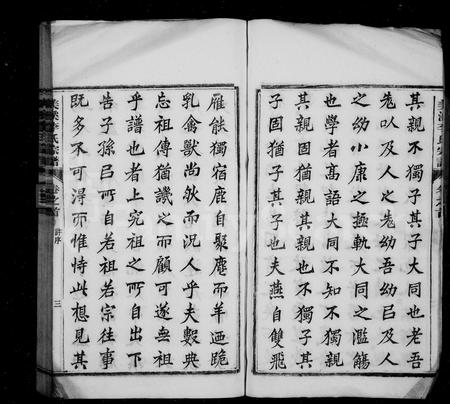 美溪李氏宗譜 卷之首
其親不獨子其子大同也老吾
老以及人之老幼吾幼以及人
之幼小康之極軌大同之濫觴
也學者高語大同不知不獨親
其親固猶親其親也不獨子其
子固猶子其子也夫燕自雙飛
雁能獨宿鹿自聚麀而羊迺跪
乳禽獸尚然而況人乎夫數典
忘祖傳猶譏之而顧可遂無祖
乎譜也者上究祖之所自出下
告子孫以所自若祖若宗往事
既多不可得而惟恃此想見其
美溪李氏宗譜 卷之首 許序 三